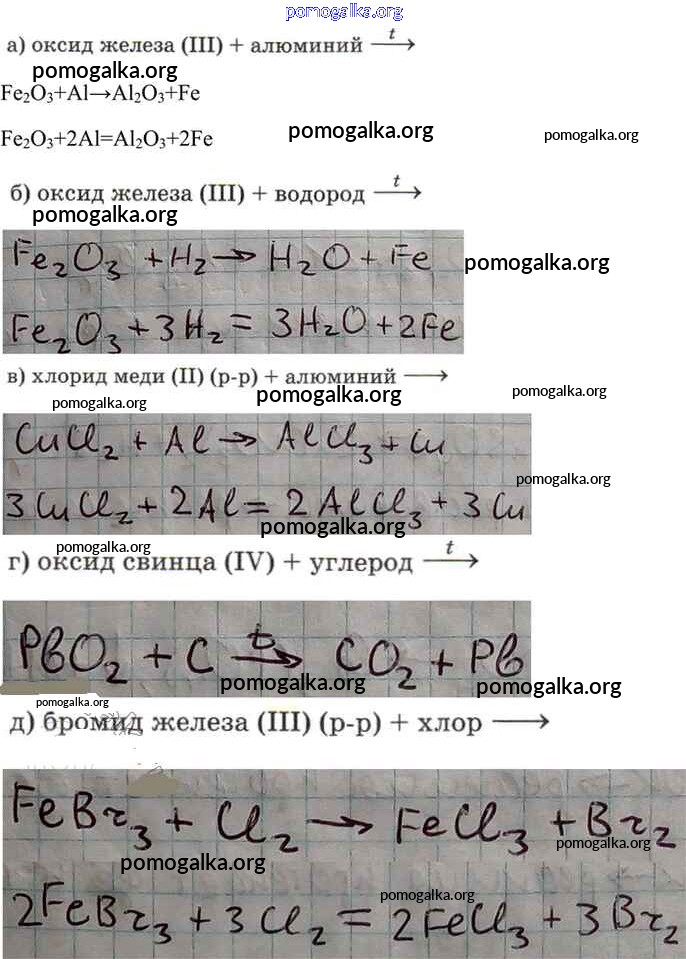 pomogalka.org
а) оксид железа (III) + алюминий —t→
pomogalka.org
Fe₂O₃+Al→Al₂O₃+Fe
Fe₂O₃+2Al=Al₂O₃+2Fe
pomogalka.org
pomogalka.org
б) оксид железа (III) + водород —t→
pomogalka.org
Fe₂O₃ + H₂ → H₂O + Fe
pomogalka.org
Fe₂O₃ + 3H₂ = 3H₂O + 2Fe
в) хлорид меди (II) (р-р) + алюминий →
pomogalka.org
pomogalka.org
pomogalka.org
CuCl₂ + Al → AlCl₃ + Cu
pomogalka.org
3CuCl₂ + 2Al = 2AlCl₃ + 3Cu
pomogalka.org
pomogalka.org
г) оксид свинца (IV) + углерод —t→
PbO₂ + C —t→ CO₂ + Pb
pomogalka.org
pomogalka.org
pomogalka.org
д) бромид железа (III) (р-р) + хлор →
FeBr₃ + Cl₂ → FeCl₃ + Br₂
pomogalka.org
pomogalka.org
pomogalka.org
2FeBr₃ + 3Cl₂ = 2FeCl₃ + 3Br₂